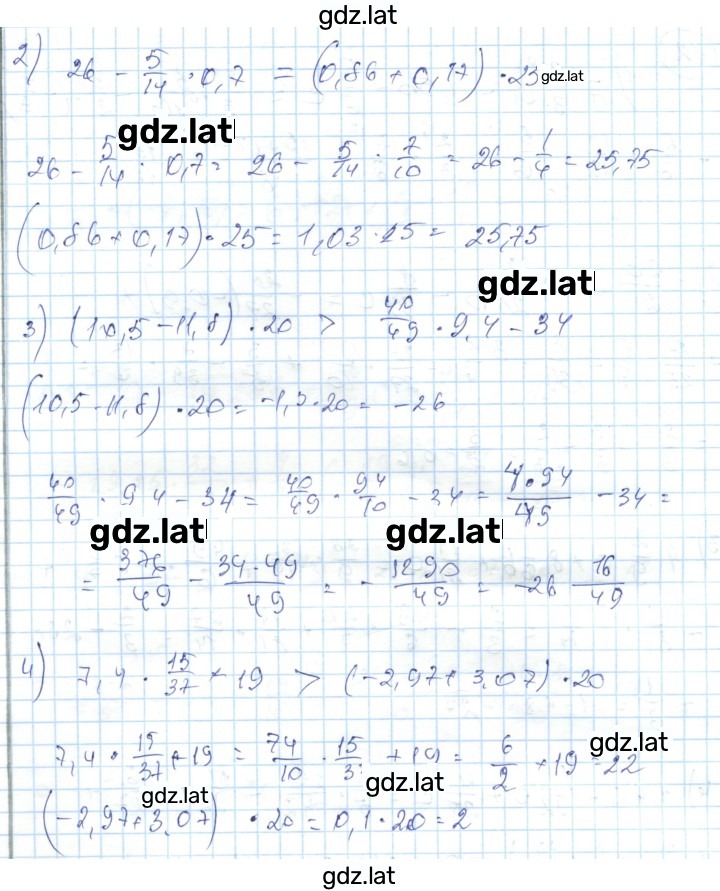 gdz.lat
2) 26 - 5/14 · 0,7 = (0,86 + 0,17) · 23 gdz.lat
gdz.lat
26 - 5/14 · 0,7 = 26 - 5/14 · 7/10 = 26 - 1/4 = 25,75
(0,86 + 0,17) · 25 = 1,03 · 25 = 25,75
gdz.lat
3) (10,5 - 11,8) · 20 > 40/49 · 9,4 - 34
(10,5 - 11,8) · 20 = -1,3 · 20 = -26
40/49 · 9,4 - 34 = 40/49 · 94/10 - 34 = 4·94/49 - 34 =
gdz.lat gdz.lat
= 376/49 - 34·49/49 = - 1290/49 = -26 16/49
4) 7,4 · 15/37 + 19 > (-2,97 + 3,07) · 20
7,4 · 15/37 + 19 = 74/10 · 15/3 + 19 = 6/2 + 19 = 22
gdz.lat
gdz.lat
gdz.lat
(-2,97 + 3,07) · 20 = 0,1 · 20 = 2
gdz.lat